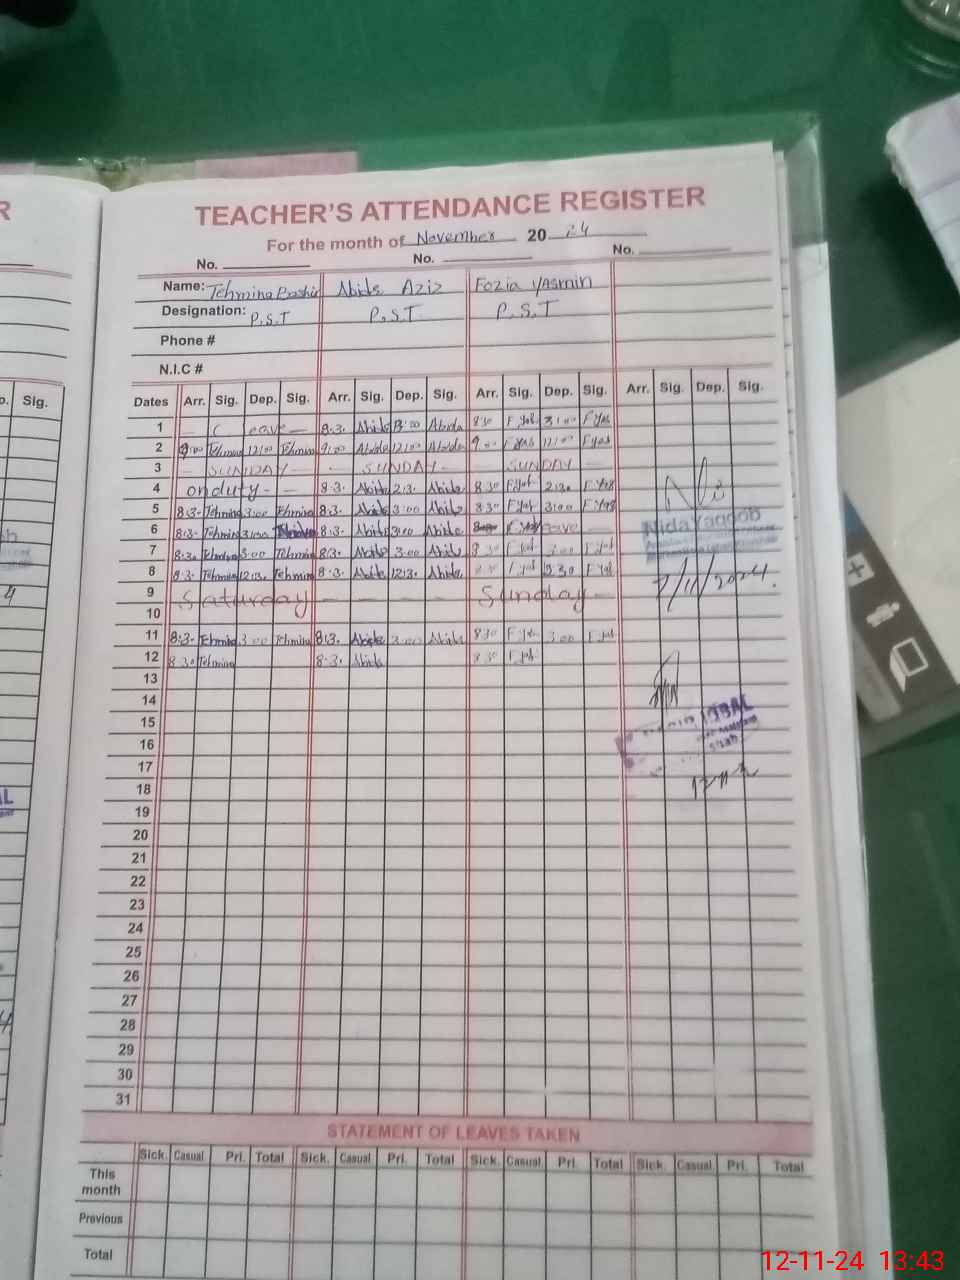 R
TEACHER'S ATTENDANCE REGISTER
For the month of November 20 24
No. No. No.
Name: Tehmina Bashir Abida Aziz Fozia Yasmin
Designation: P.S.T P.S.T P.S.T
Phone #
N.I.C #
p. Sig. Dates Arr. Sig. Dep. Sig. Arr. Sig. Dep. Sig. Arr. Sig. Dep. Sig. Arr. Sig. Dep. Sig.
1 — C Leave — 8:3. Abida 3:00 Abida 830 F Yas 3:00 F Yas
2 9:00 Tehmina 12:00 Tehmina 9:00 Abida 12:00 Abida 9:00 F Yas 12:00 F Yas
3 — SUNDAY — - SUNDAY - SUNDAY —
4 on duty - — 8:3. Abida 2:3. Abida 8 30 F Yas 2:3. F Yas
5 8:3. Tehmina 3:00 Tehmina 8:3. Abida 3:00 Abida 8:30 F Yas 3:00 F Yas
6 8:3. Tehmina 3:00 8:3. Abida 3:00 Abida Leave —
7 8:3. 3:00 Tehmina 8:3. Abida 3:00 Abida 8 30 F Yas 3:00 F Yas
8 8:3. Tehmina 12:3. Tehmina 8:3. Abida 12:3. Abida F Yas 12 30 F Yas
9 Saturday — — — — Sunday —
10
11 8:3. Tehmina 3:00 Tehmina 8:3. Abida 3:00 Abida 8 30 F Yas 3:00 F Yas
12 8 30 Tehmina 8:3. Abida 8 30 F Yas
Nida Yaqoob
7/11/2024.
13
14
15
IQBAL
16
17
18
19
20
21
22
23
24
25
26
27
28
29
30
31
STATEMENT OF LEAVES TAKEN
Sick. Casual Pri. Total Sick. Casual Pri. Total Sick. Casual Pri. Total Sick. Casual. Pri. Total
This month
Previous
Total
12-11-24 13:43